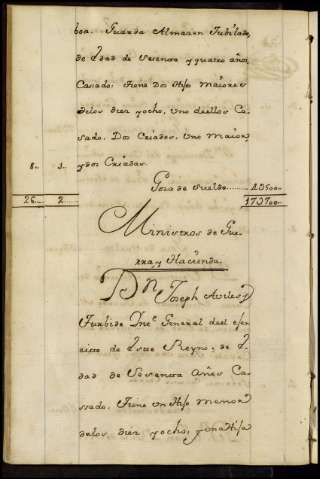 boa. Guarda Almazen Jubilado,
de Edad de Sesenta y quatro años,
Casado. Tiene Dos Hijos Maiores
delos diez yocho, Uno dellos Ca-
sado. Dos Criados, Uno Maior,
8. 3. y dos Criadas.
Goza de Sueldo
26. 2
Ministros de Gue-
rra, y Hacienda.
Dn Joseph Aviles,
Yturbide Yne. General del exer-
cito de Este Reyno, de E-
dad de Sesenta Años Ca-
sado. Tiene Un Hijo Menor
delos diez yocho, y Una Hija